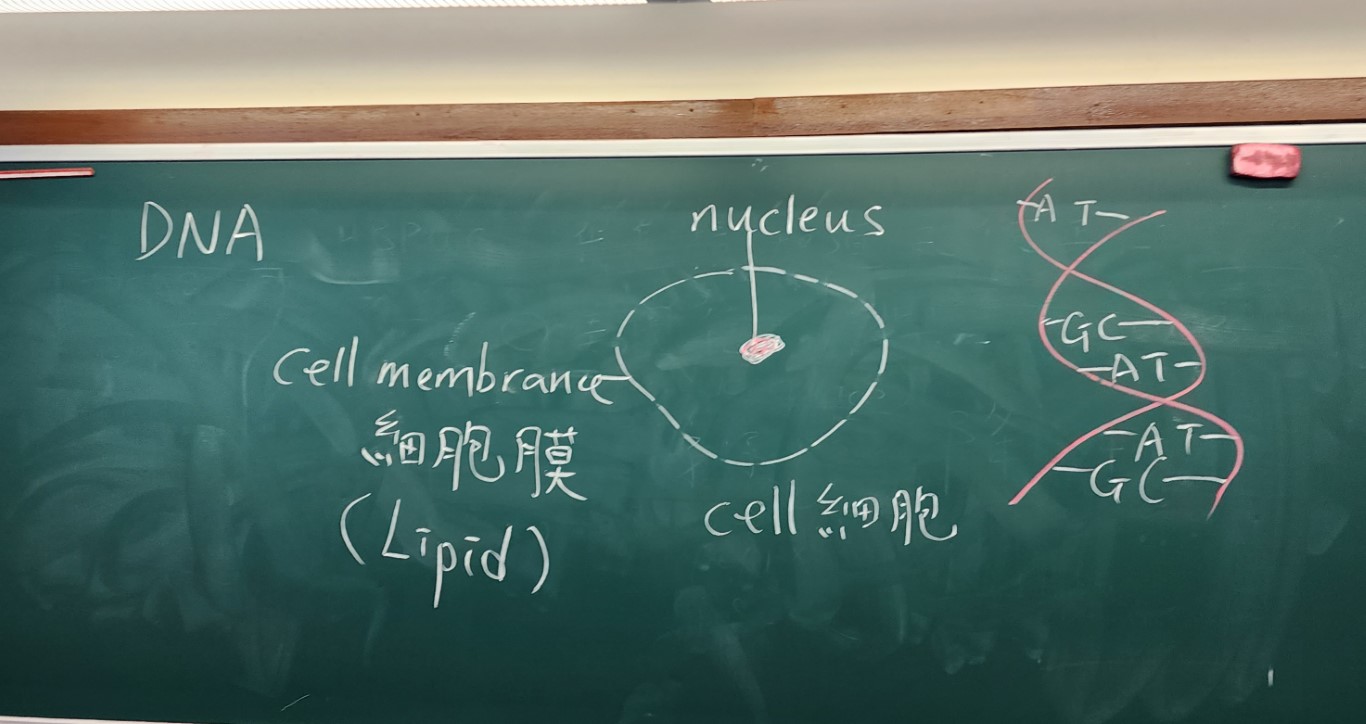 DNA
nucleus
cell membrane
細胞膜
(Lipid)
cell 細胞
A T
G C
A T
A T
G C